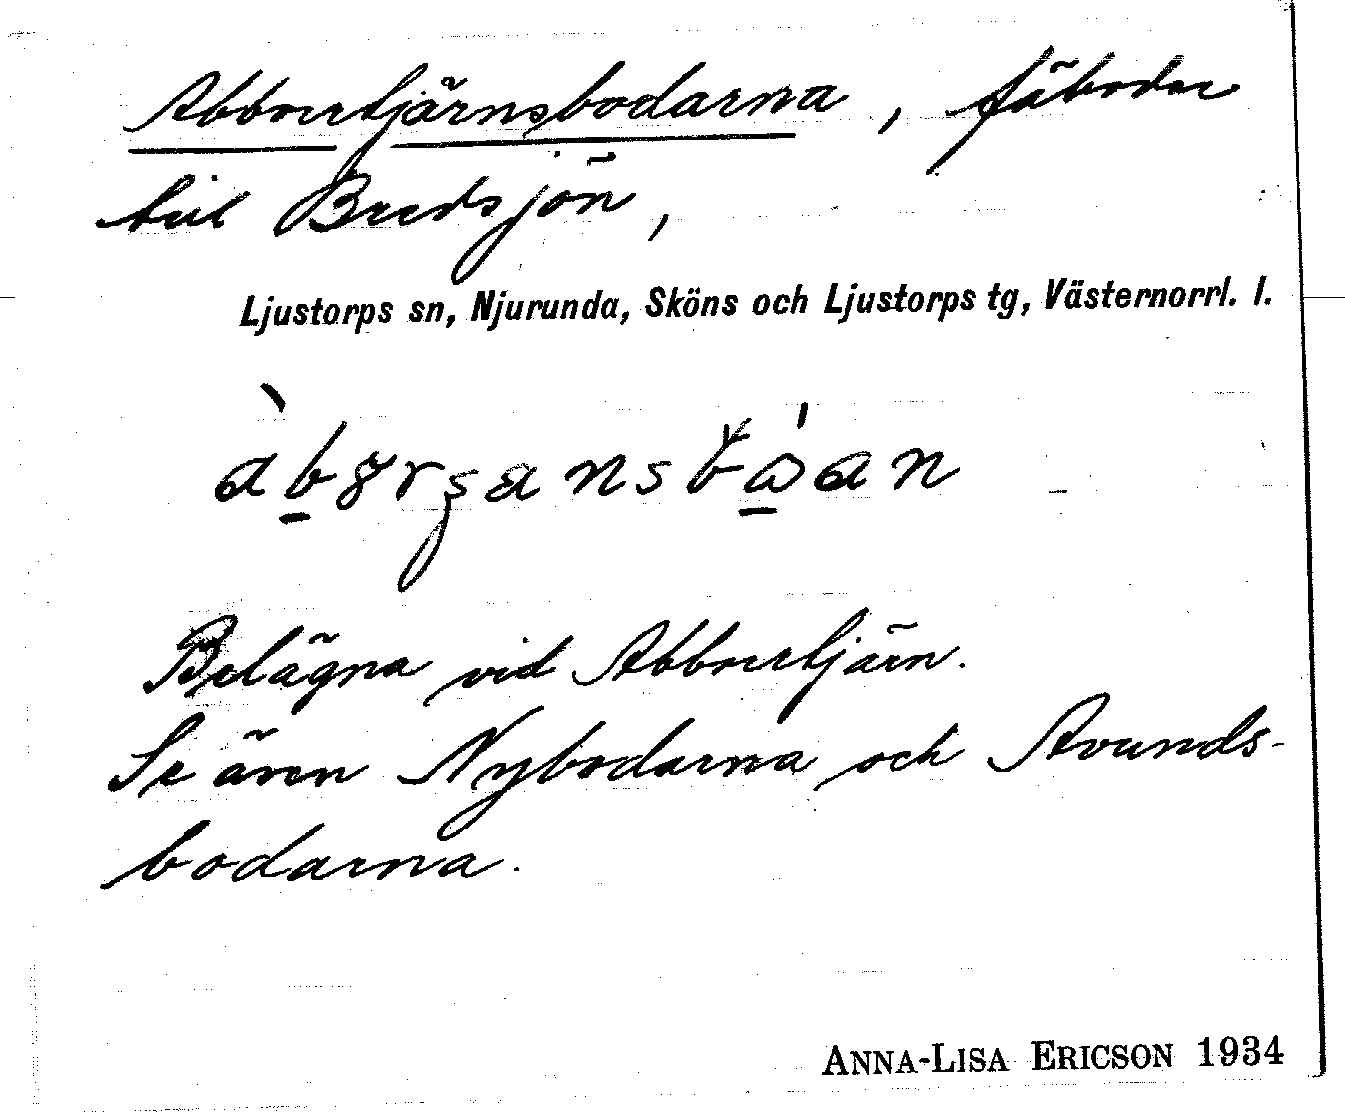 Abborrtjärnsbodarna, fäbodar
till Bredsjön,
Ljustorps sn, Njurunda, Sköns och Ljustorps tg, Västernorrl. l.
Belägna vid Abborrtjärn.
Se även Nybodarna och Avunds-
bodarna.
ANNA-LISA ERICSON 1934